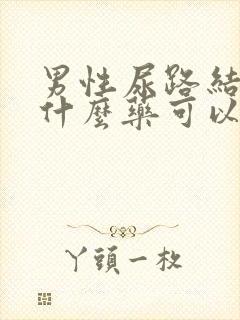 男性尿路結
什麼藥可以
丫頭一枚